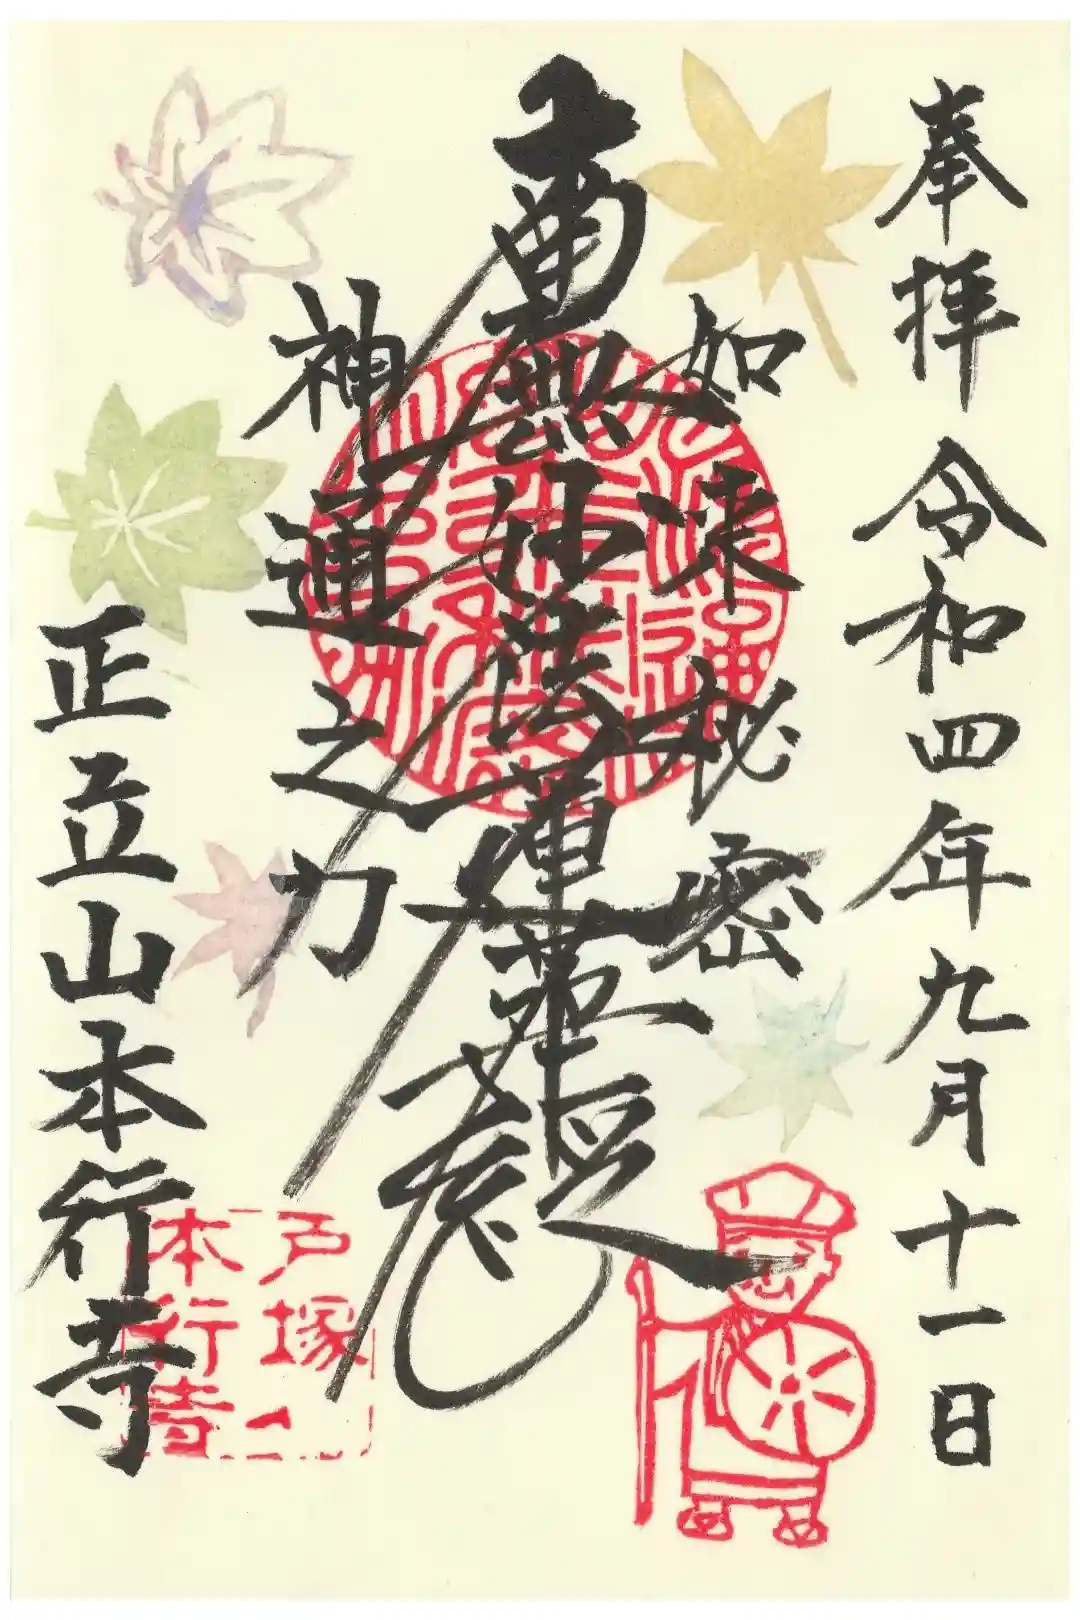 奉拝 令和四年九月十一日
如来秘密
南無妙法蓮華経
神通之力
正立山本行寺
戸塚山
本行寺